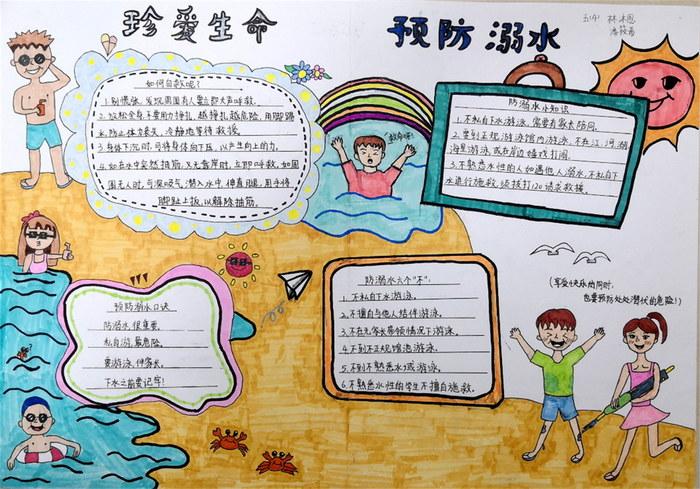 珍爱生命
预防溺水
如何自救呢?
1.别慌张,发现周围有人要立即大声呼救。
2.放松全身不要用力挣扎,越挣扎越危险,用脚踢
水,防止体力丧失,冷静地等待救援。
3.身体下沉时,可将身体向下压,以产生向上的力。
4.如在水中突然抽筋,又无靠岸时,立即呼救。如周
围无人时,可深吸气,潜入水中,伸直腿,用手将
脚趾上扳,以解除抽筋。
救命啊!
防溺水小知识
1.不私自下水游泳,需要有家长陪同。
2.要到正规游泳馆内游泳,不在江、河、湖、
海里游泳,或在岸边嬉戏打闹。
3.不熟悉水性的人如遇他人溺水,不私自下
水进行施救,须拨打120请求救援。
预防溺水口诀
防溺水,很重要。
私自游,最危险。
要游泳,伴家长。
下水之前要记牢!
防溺水六个"不":
1.不私自下水游泳。
2.不擅自与他人结伴游泳。
3.不在无家长带领情况下游泳。
4.不到不正规馆池游泳。
5.不到不熟悉水域游泳。
6.不熟悉水性的学生不擅自施救。
(享受快乐的同时,
也要预防处处潜伏的危险!)